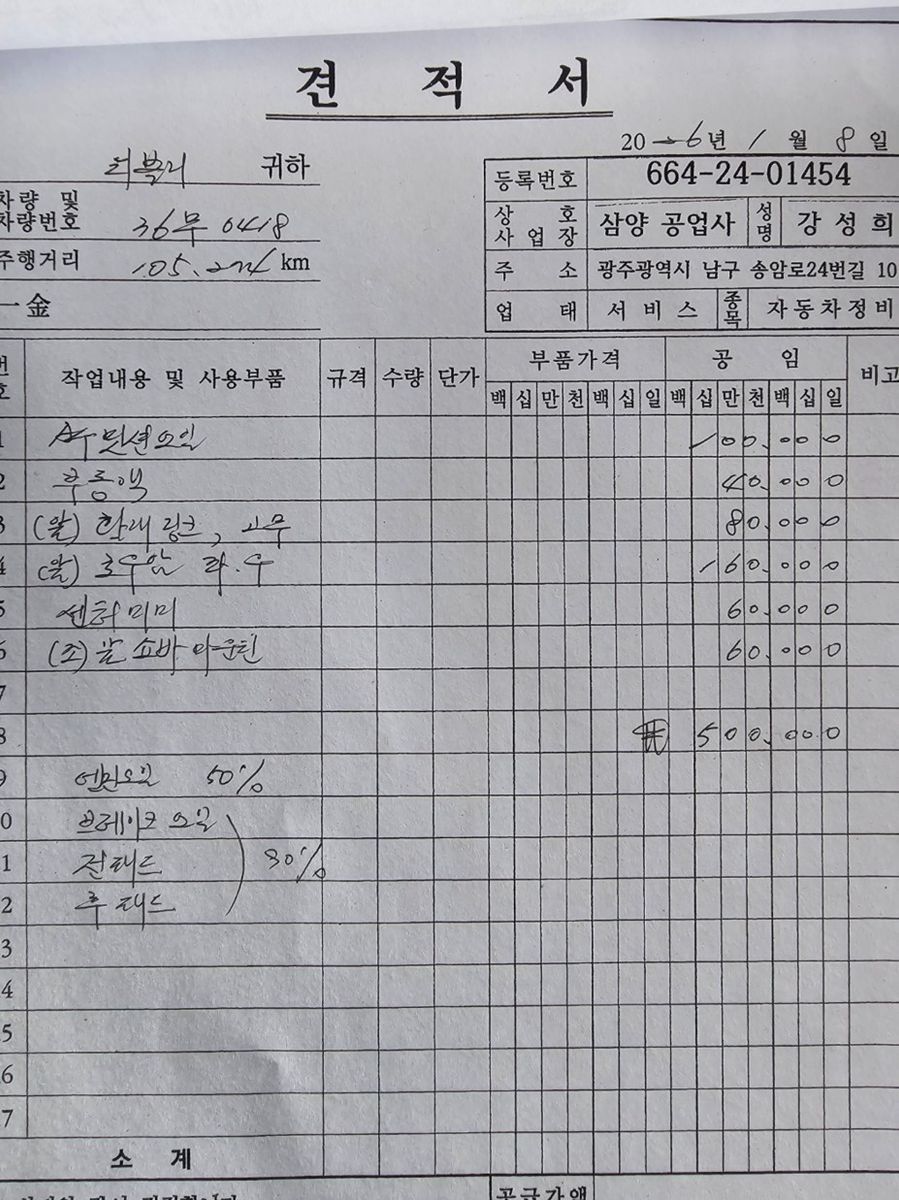 견 적 서
20 26년 1 월 8 일
러블리 귀하
등록번호 664-24-01454
차량 및
차량번호 36무 0418
상 호
사 업 장 삼양 공업사 성명 강성희
주행거리 105. km
주 소 광주광역시 남구 송암로24번길 10
一金
업 태 서 비 스 종목 자동차정비
번호 작업내용 및 사용부품 규격 수량 단가 부품가격 공 임 비고
백 십 만 천 백 십 일 백 십 만 천 백 십 일
1 밋션오일 100.000
2 부동액 40.000
3 (앞) 활대링크, 고무 80.000
4 (앞) 로우암 좌.우 160.000
5 센터미미 60.000
6 (조) 앞 쇼바 마운틴 60.000
7
8 ₩ 500.000
9 엔진오일 50%
0 브레이크 오일
1 전패드 30%
2 후 패드
3
4
5
6
7
소 계
공급가액